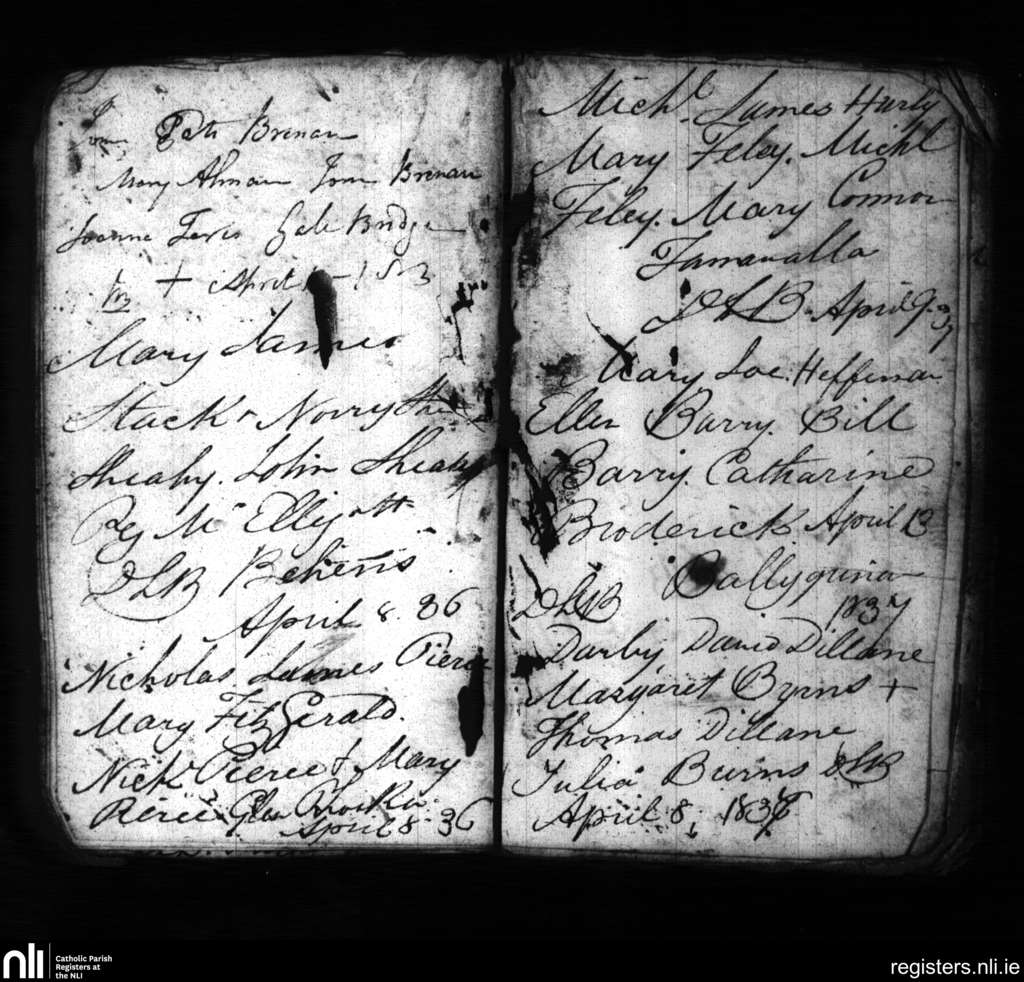 Tom Patt Brenan
Mary Ahearn Tom Brenan
Joanna Gale Bridge
+ April 183
Mary James
Stack + Norry Shee
Sheahy. John Sheahy
Peg Mc Elligott
DLB Behens
April 8. 36
Nicholas James Pierce
Mary FitzGerald.
Nichs Pierce & Mary
Pierce Glan
April 8 36
Michl. James Hurly
Mary Feley. Michl
Feley. Mary Connor
Fananalla
DLB. April 9. 37
Mary Joe. Heffernan
Ellen Barry. Bill
Barry. Catharine
Broderick. April 13
Ballyguina
DLB 1837
Darby David Dillane
Margaret Byrns +
Thomas Dillane
Julia Burns DLB
April 8, 183
nli Catholic Parish
Registers at
the NLI
registers.nli.ie